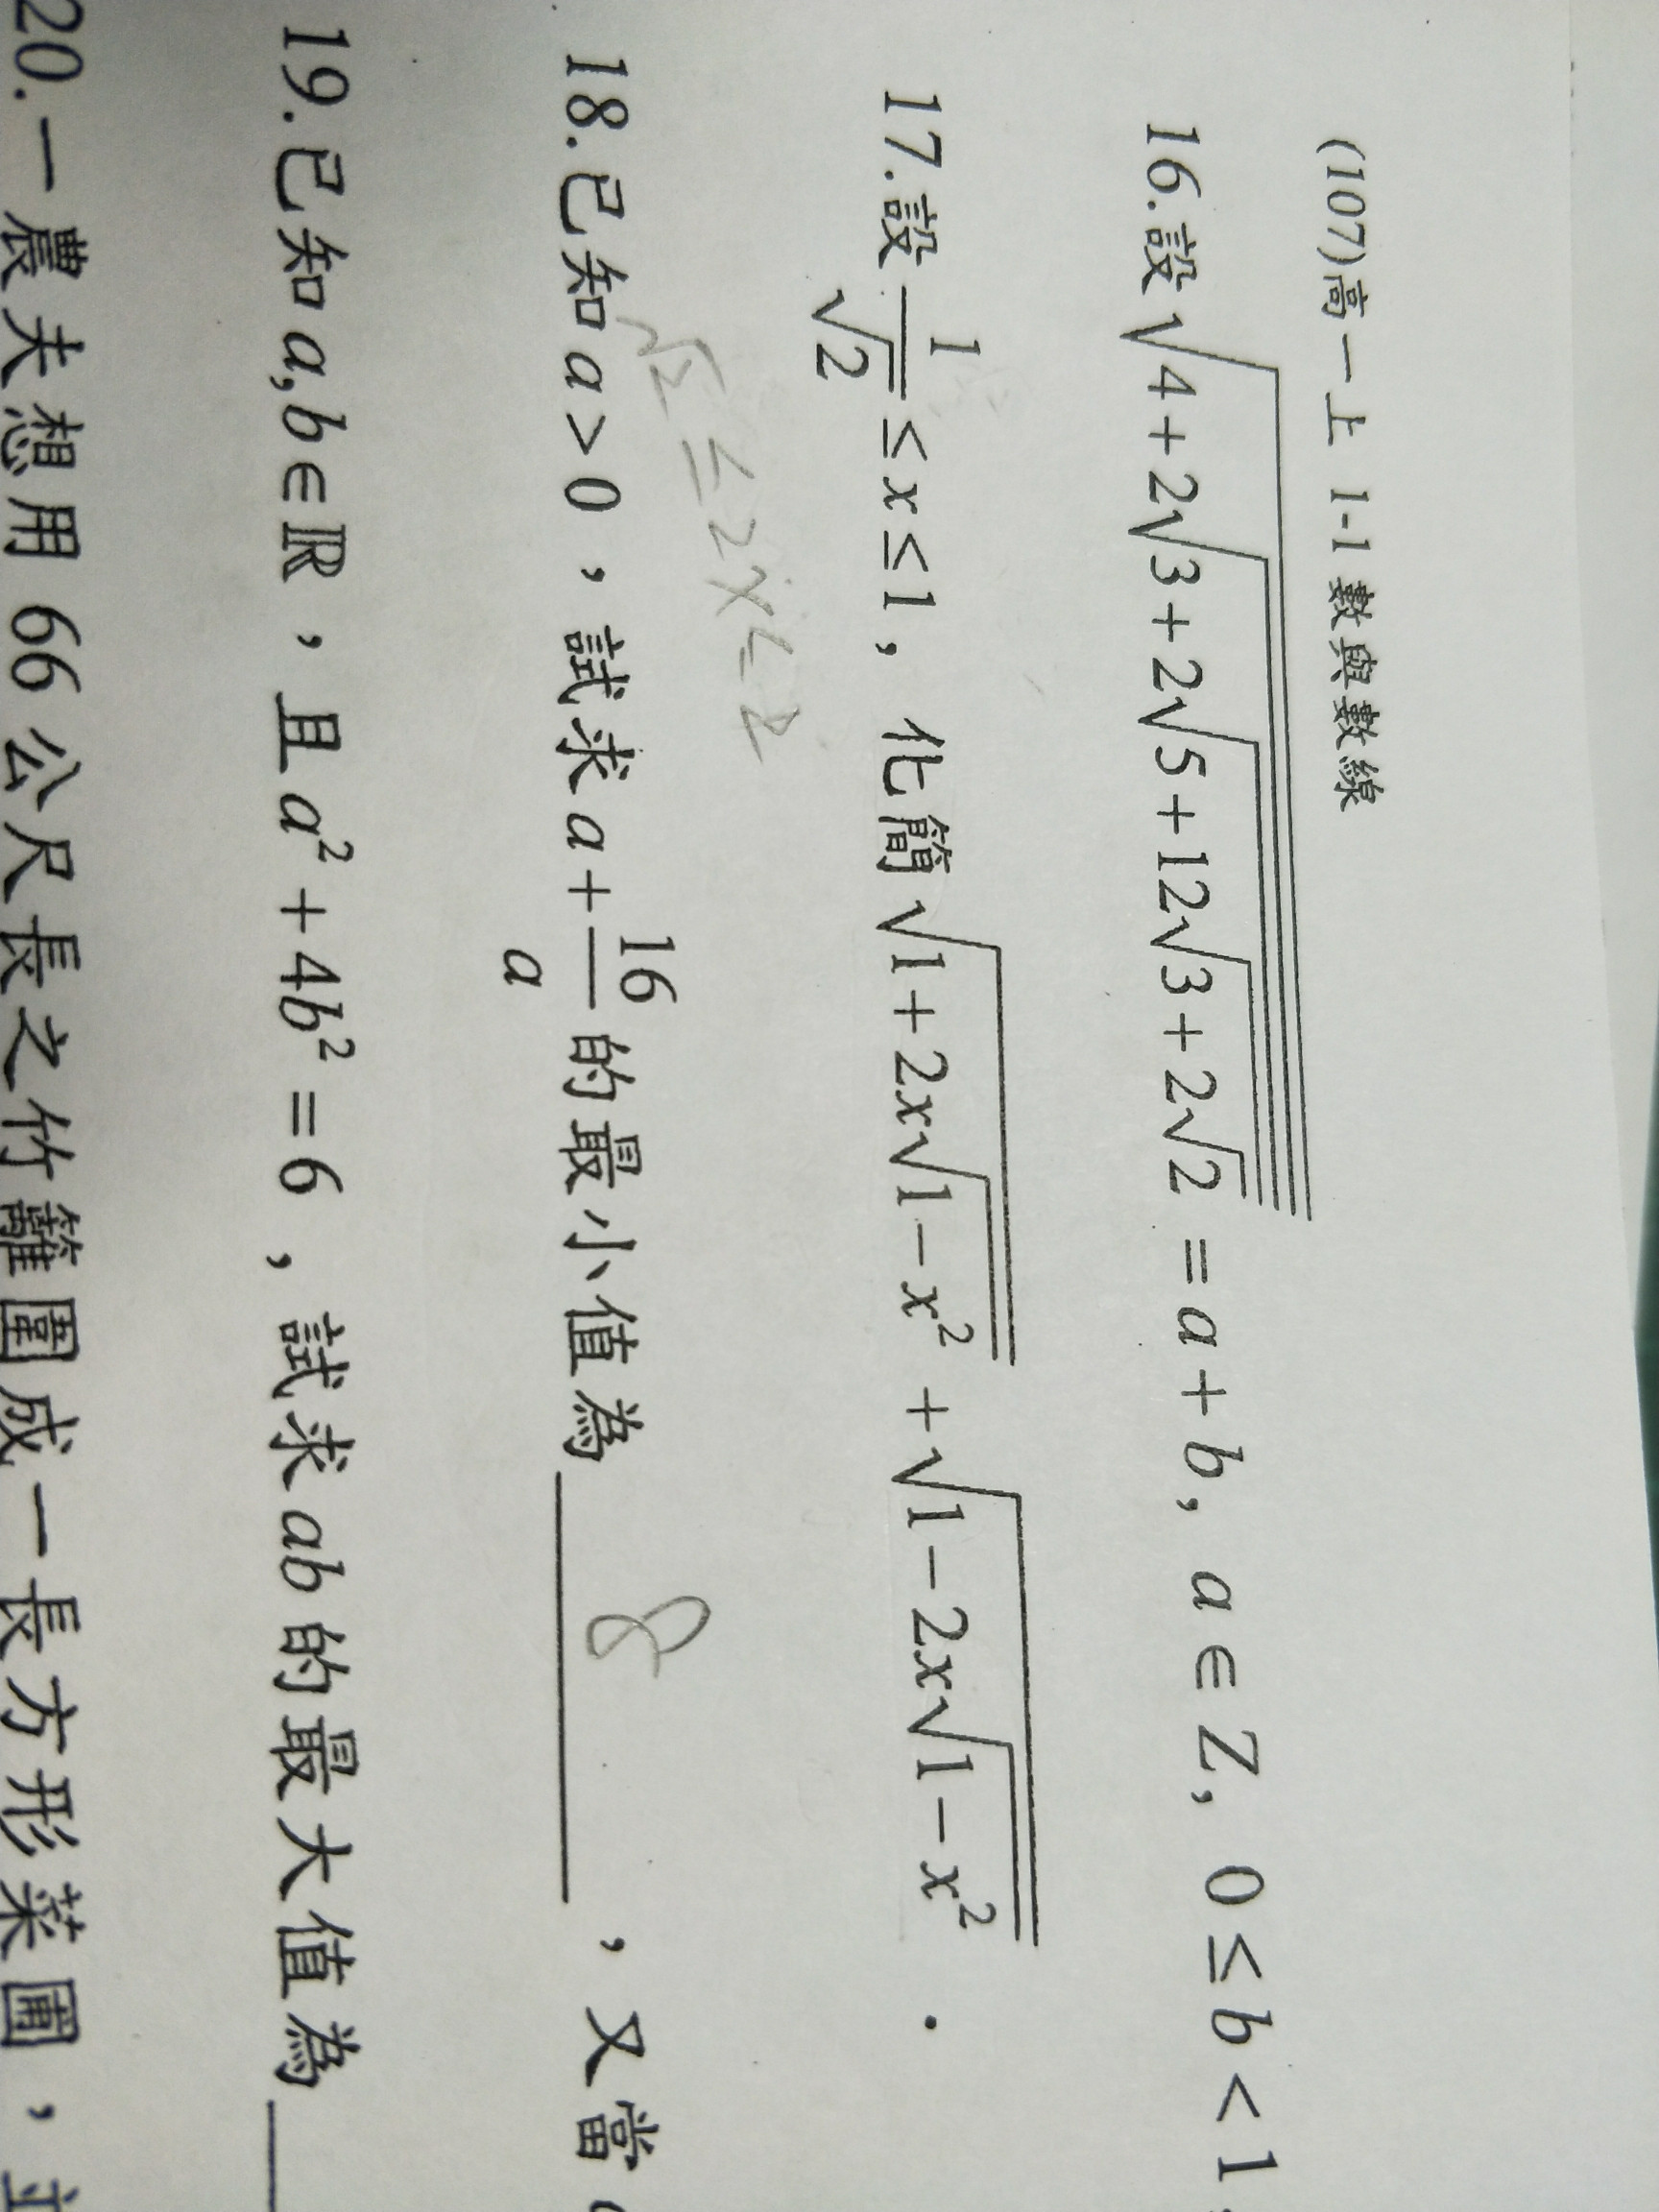 (107)高一上 1-1 數與數線
16.設√(4+2√(3+2√(5+12√(3+2√2)))) = a+b, a∈Z, 0≤b<1
17.設 1/√2 ≤x≤1, 化簡√(1+2x√(1-x²)) + √(1-2x√(1-x²)) .
√2 ≤ 2x ≤ 2
18.已知a>0,試求a+16/a的最小值為 8 ,又當
19.已知a,b∈ℝ,且a²+4b²=6,試求ab的最大值為
20.一農夫想用 66 公尺長之竹籬圍成一長方形菜圃,